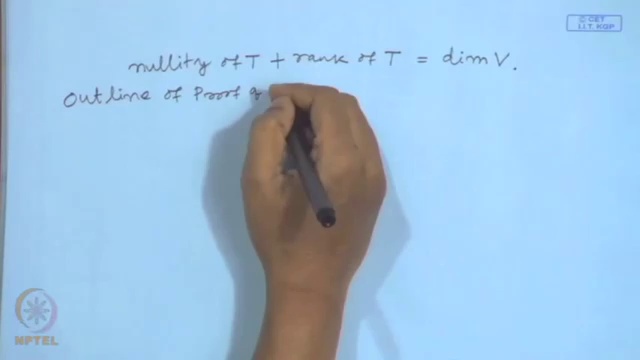 © CET
I.I.T. KGP
nullity of T + rank of T = dim V.
Outline of Proof
NPTEL